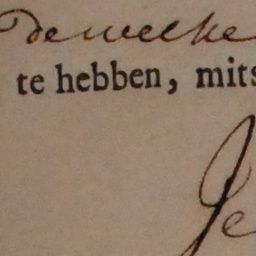 dewelke
te hebben, mits
Je